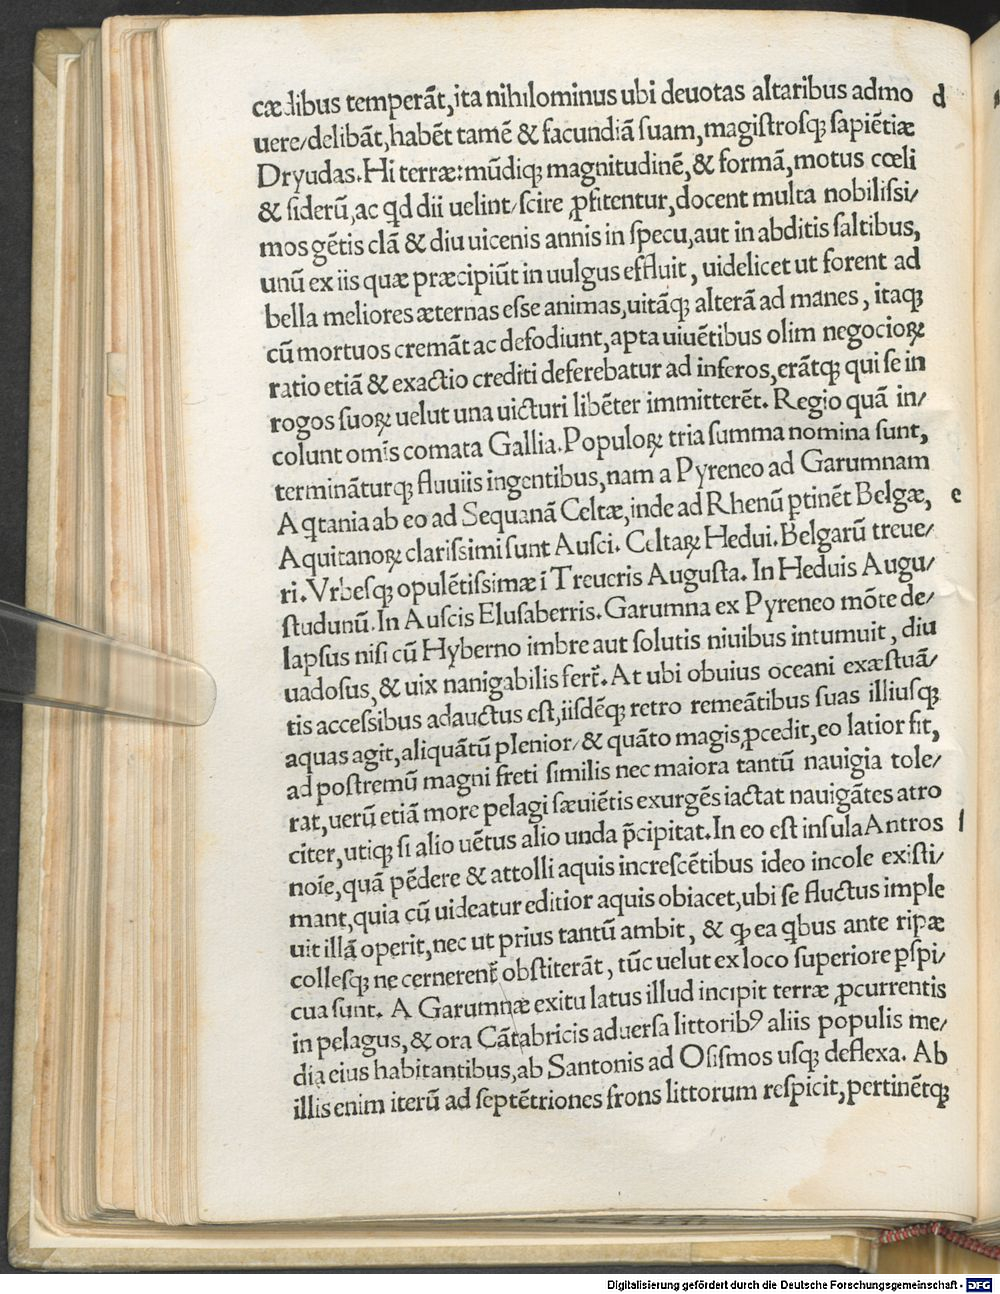 cædibus temperāt, ita nihilominus ubi deuotas altaribus admo d
uere/delibāt, habēt tamē & facundiā suam, magistrosqꝫ sapiētiæ
Dryudas. Hi terræ: mūdiqꝫ magnitudinē, & formā, motus cœli
& siderū, ac qd dii uelint/scire ꝓfitentur, docent multa nobilissi/
mos gētis clā & diu uicenis annis in specu, aut in abditis saltibus,
unū ex iis quæ præcipiūt in uulgus effluit, uidelicet ut forent ad
bella meliores æternas esse animas, uitāqꝫ alterā ad manes, itaqꝫ
cū mortuos cremāt ac defodiunt, apta uiuētibus olim negocioꝝ
ratio etiā & exactio crediti deferebatur ad inferos, erātqꝫ qui se in
rogos suoꝝ uelut una uicturi libēter immitterēt. Regio quā in/
colunt omīs comata Gallia. Populoꝝ tria summa nomina sunt,
terminātur qꝫ fluuiis ingentibus, nam a Pyreneo ad Garumnam
Aqtania ab eo ad Sequanā Celtæ, inde ad Rhenū ꝑtinēt Belgæ, e
Aquitanoꝝ clarissimi sunt Ausci. Celtaꝝ Hedui. Belgarū treue/
ri. Vrbesqꝫ opulētissimæ ī Treueris Augusta. In Heduis Augu/
studunū. In Auscis Elusaberris. Garumna ex Pyreneo mōte de/
lapsus nisi cū Hyberno imbre aut solutis niuibus intumuit, diu
uadosus, & uix nanigabilis fert̄. At ubi obuius oceani exæstuā/
tis accessibus adauctus est, iisdēqꝫ retro remeātibus suas illiusqꝫ
aquas agit, aliquātū plenior/& quāto magis ꝓcedit, eo latior fit,
ad postremū magni freti similis nec maiora tantū nauigia tole/
rat, uerū etiā more pelagi sæuiētis exurgēs iactat nauigātes atro
citer, utiqꝫ si alio uētus alio unda p̄cipitat. In eo est insula Antros f
noīe, quā pēdere & attolli aquis increscētibus ideo incole existi/
mant, quia cū uideatur editior aquis obiacet, ubi se fluctus imple
uit illā operit, nec ut prius tantū ambit, & ꝙ ea qbus ante ripæ
collesqꝫ ne cernerent̄ obstiterāt, tūc uelut ex loco superiore ꝑspi/
cua sunt. A Garumnæ exitu latus illud incipit terræ ꝓcurrentis
in pelagus, & ora Cātabricis aduersa littoribꝰ aliis populis me/
dia eius habitantibus, ab Santonis ad Osismos usqꝫ deflexa. Ab
illis enim iterū ad septētriones frons littorum respicit, pertinētqꝫ
Digitalisierung gefördert durch die Deutsche Forschungsgemeinschaft - DFG